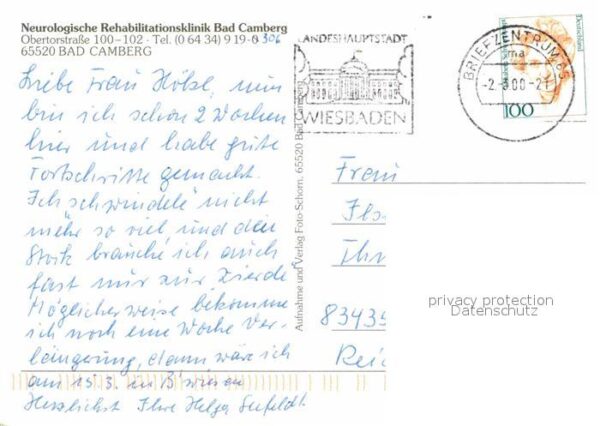 Neurologische Rehabilitationsklinik Bad Camberg
Obertorstraße 100–102 - Tel. (0 64 34) 9 19-0 306
65520 BAD CAMBERG
Liebe Frau Hölzl, nun
bin ich schon 2 Wochen
hier und habe gute
Fortschritte gemacht.
Ich schwindele nicht
mehr so viel und den
Stock brauche ich auch
fast nur zur Zierde
Möglicherweise bekomme
ich noch eine Woche Ver-
längerung, dann wäre ich
am 15.3. in B'wiesen
Herzlichst Ihre Helga Seefeldt.
Aufnahme und Verlag Foto-Schorn, 65520 Bad
LANDESHAUPTSTADT
WIESBADEN
BRIEFZENTRUM 65
ma
-2.-3.00-21
Deutschland
100
Frau
Flo
Ihr
83435
Reic
privacy protection
Datenschutz